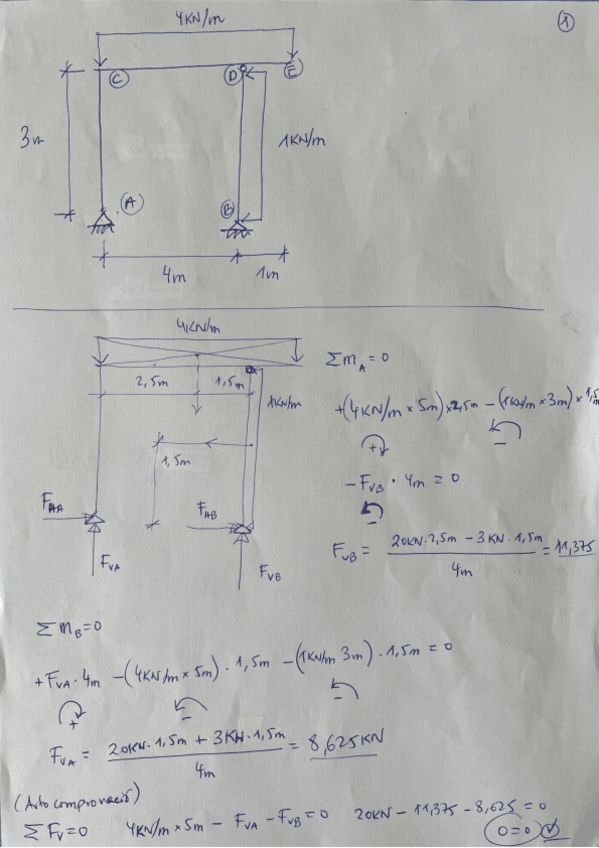 4KN/m
1
C
D
E
3m
1KN/m
A
B
4m
1m
4KN/m
2,5m
1,5m
1KN/m
1,5m
F_AB
F_VA
F_VB
ΣM_A = 0
+(4KN/m × 5m) × 2,5m - (1KN/m × 3m) × 1,5m
+
-
- F_VB · 4m = 0
-
F_VB = (20KN · 2,5m - 3KN · 1,5m) / 4m = 11,375
ΣM_B = 0
+F_VA · 4m - (4KN/m × 5m) · 1,5m - (1KN/m 3m) · 1,5m = 0
+
-
-
F_VA = (20KN · 1,5m + 3KN · 1,5m) / 4m = 8,625KN
(Auto comprovació)
ΣF_V = 0 4KN/m × 5m - F_VA - F_VB = 0 20KN - 11,375 - 8,625 = 0
0 = 0 ✓